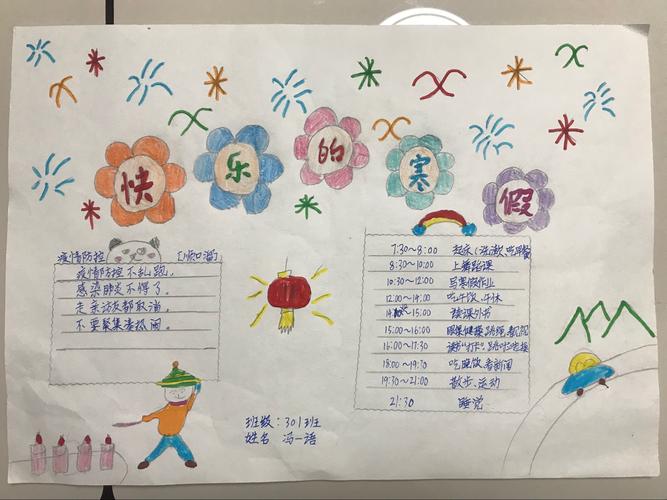 快乐的寒假
疫情防控 【顺口溜】
疫情防控不乱跑，
感染肺炎不得了。
走亲访友都取消，
不要聚集看热闹。
7:30～8:00 起床(洗漱、吃早餐
8:30～10:00 上舞蹈课
10:30～12:00 写寒假作业
12:00～14:00 吃午饭、午休
15:00 读课外书
15:00～16:00 眼保健操、跳绳、
16:00～17:30 读书"打卡"、
18:00～19:30 吃晚饭、看新闻
19:30～21:00 散步、运动
21:30 睡觉
班级：301班
姓名 冯一语